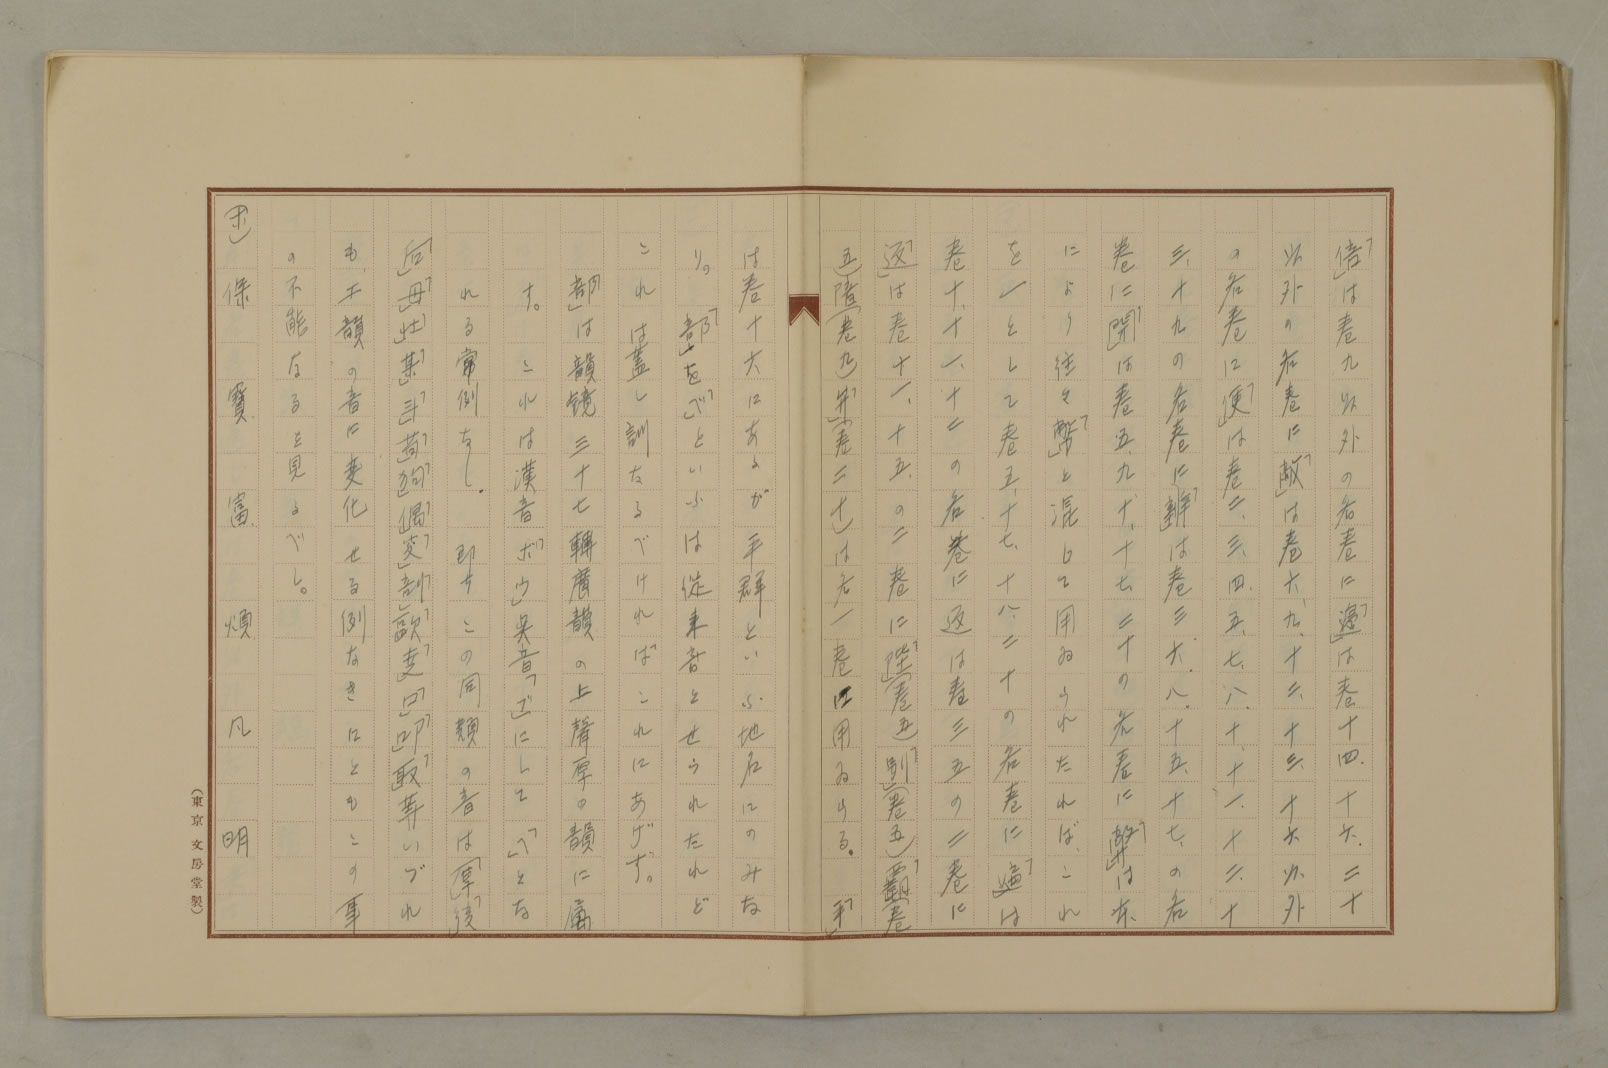 「倍」は巻九以外の各巻に「邊」は巻十四、十六、二十
以外の各巻に「敝」は巻六、九、十二、十三、十六以外
の各巻に「便」は巻二、三、四、五、七、八、十、十一、十二、十
三、十九の各巻に「辨」は巻三、六、八、十五、十七、の各
巻に「閇」は巻五、九、十、十七、二十の各巻に「弊」は本
により往々「幣」と混じて用ゐられたれば、これ
を一として巻五、十七、十八、二十の各巻に「遍」は
巻十、十一、十二の各巻に返は巻三五の二巻に
「返」は巻十一、十五、の二巻に「陛」(巻五)「別」(巻五)「覇」(巻
五)「陪」(巻九)「弁」(巻二十)は各一巻に用ゐらる。「平」
は巻十六にあるが平群といふ地名にのみな
り。「部」を「べ」といふは從来音とせられたれど
これは蓋し訓なるべければこれにあげず。
「部」は韻镜三十七轉廣韻の上聲厚の韻に属
す。これは漢音「ボウ」呉音「ブ」にして「ヘ」とな
れる常例なし。即ちこの同類の音は「厚」「後」
「后」「母」「牡」「某」「斗」「苟」「狗」「偈」「叜」「剖」「歐」「走」「口」「叩」「取」等いづれ
も、エ韻の音に変化せる例なきにともこの事
の不能なるを見るべし。
(ホ) 保 寶 富 煩 凡 明
(東京 文房堂製)